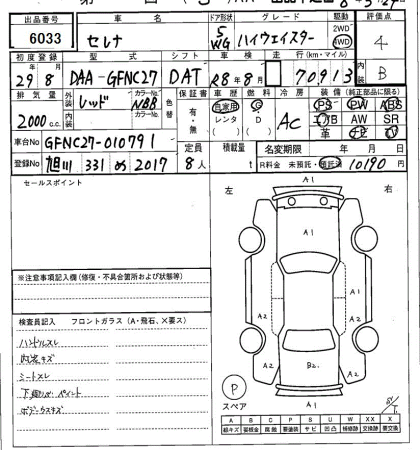 出品番号 車名 ドア形状 グレード 駆動 評価点
6033 セレナ 5 WG ハイウェイスター 2WD 4WD 4
初度登録 型式 シフト 車検 走行(km・マイル) 内装
29年8月 DAA-GFNC27 DAT R8年8月 70913 B
排気量 外装 カラーNo 色替 保証書 車歴 燃料 冷房 装備(純正部品に限る)
2000c.c. レッド NBB 有・無 自家用 レンタ ( ) G D ( ) AC PS PW ABS
内装 カラーNo エアB AW SR
革 TV
車台No GFNC27-010791
定員 積載量 名変期限 年 月 日
登録No 旭川 331 め 2017 8人 t R料金 未預託・預託済 10190円
セールスポイント
左 右
A1
A1
A2 A2
A2 A2
B2
A1
※注意事項記入欄(修復・不具合箇所および状態等)
検査員記入 フロントガラス(A・飛石、X要ス)
ハンドルスレ
内装キズ
シートスレ
下廻りサビ ペイント
ボデースキズ
P
スペア
A B C P S U W XX X
線キズ 要板金 腐蝕 要塗装 サビ 凹凸 補修跡 交換跡 要交換